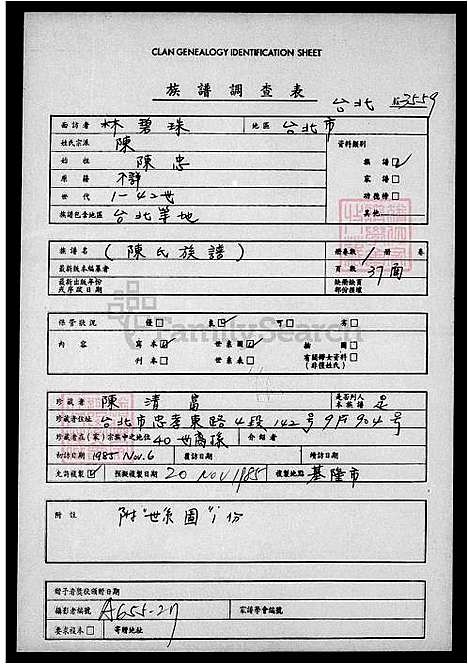 CLAN GENEALOGY IDENTIFICATION SHEET
族譜調查表
台北 53559
面訪者 林碧珠 地區 台北市
姓氏宗派 陳 資料類別
始祖 陳忠 族譜☑
原籍 不詳 家譜□
世代 1-42世 功德榜□
族譜包含地區 台北等地 其他
族譜名 (陳氏族譜) 冊卷數 1 冊 卷
最新版本編纂者 頁數 37面
最新出版年份或序跋日期 缺冊缺頁部份損壞
保管狀況 優□ 良☑ 可□ 劣□
內容 寫本☑ 世系圖☑ 繪圖□
刊本□ 世系表□ 有關婦女資料□(非僅姓氏)
FamilySearch
珍藏者 陳清富 是否列入本族譜 是
珍藏者住址 台北市忠孝東路4段142号9F904号
珍藏者在(家)宗族中之地位 40世裔孫 介紹者
初訪日期 1985 Nov. 6 複訪日期 續訪日期
允許複製☑ 預擬複製日期 20 NOV 1985 複製地點 基隆市
附註 附"世系圖"1份
贈予者獎狀頒贈日期
攝影者編號 A655-27 家譜學會編號
要求複本□ 寄贈地址